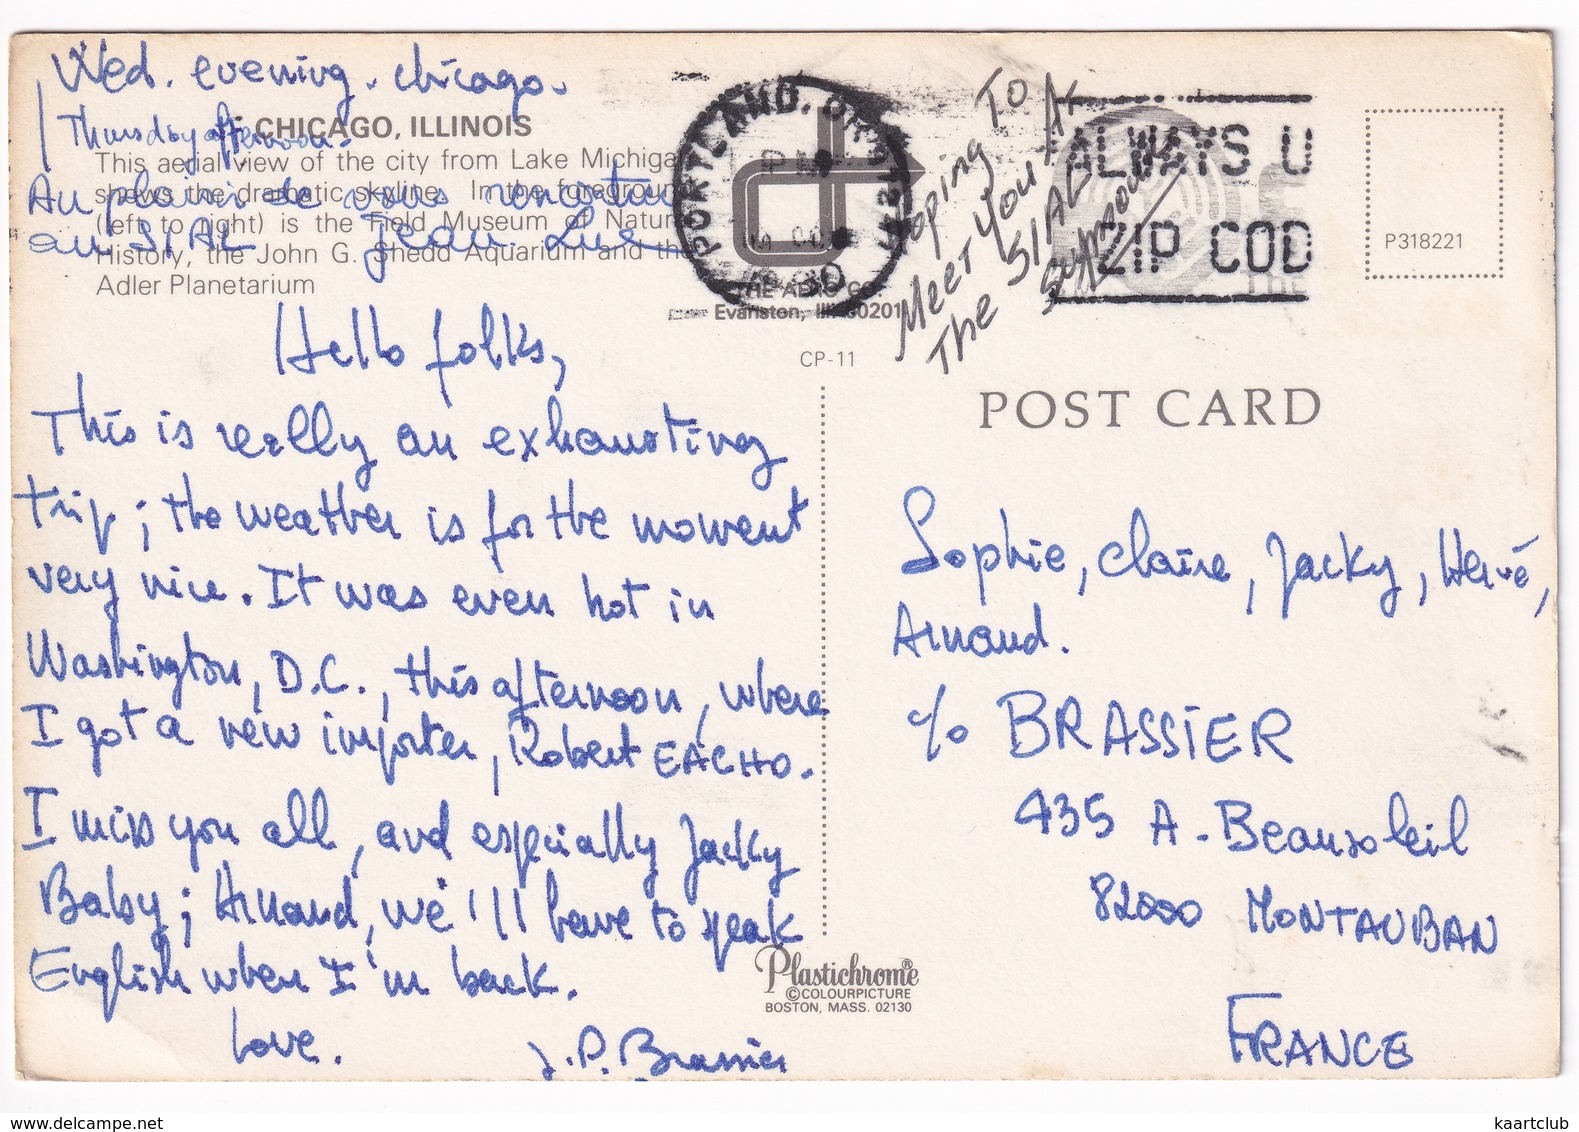 Wed. evening. chicago.
Thursday afternoon.
CHICAGO, ILLINOIS
This aerial view of the city from Lake Michigan
shows the dramatic skyline. In the foreground
(left to right) is the Field Museum of Natural
History, the John G. Shedd Aquarium and the
Adler Planetarium
Au plaisir de vous rencontrer
au SIAL Jean Luc
THE AERO CO.
Evanston, Ill. 60201
CP-11
PORTLAND, OR 972
PM
1980
Hoping To
Meet You At
The SIAL
ALWAYS U
ZIP COD
P318221
POST CARD
Hello folks,
This is really an exhausting
trip; the weather is for the moment
very nice. It was even hot in
Washington, D.C., this afternoon, where
I got a new importer, Robert EACHO.
I miss you all, and especially Jacky
Baby; Arnaud, we'll have to speak
English when I'm back.
Love.
J.P. Brassier
Sophie, Claire, Jacky, Hervé,
Arnaud.
c/o BRASSIER
435 A. Beausoleil
82000 MONTAUBAN
FRANCE
Plastichrome®
©COLOURPICTURE
BOSTON, MASS. 02130
www.delcampe.net
kaartclub